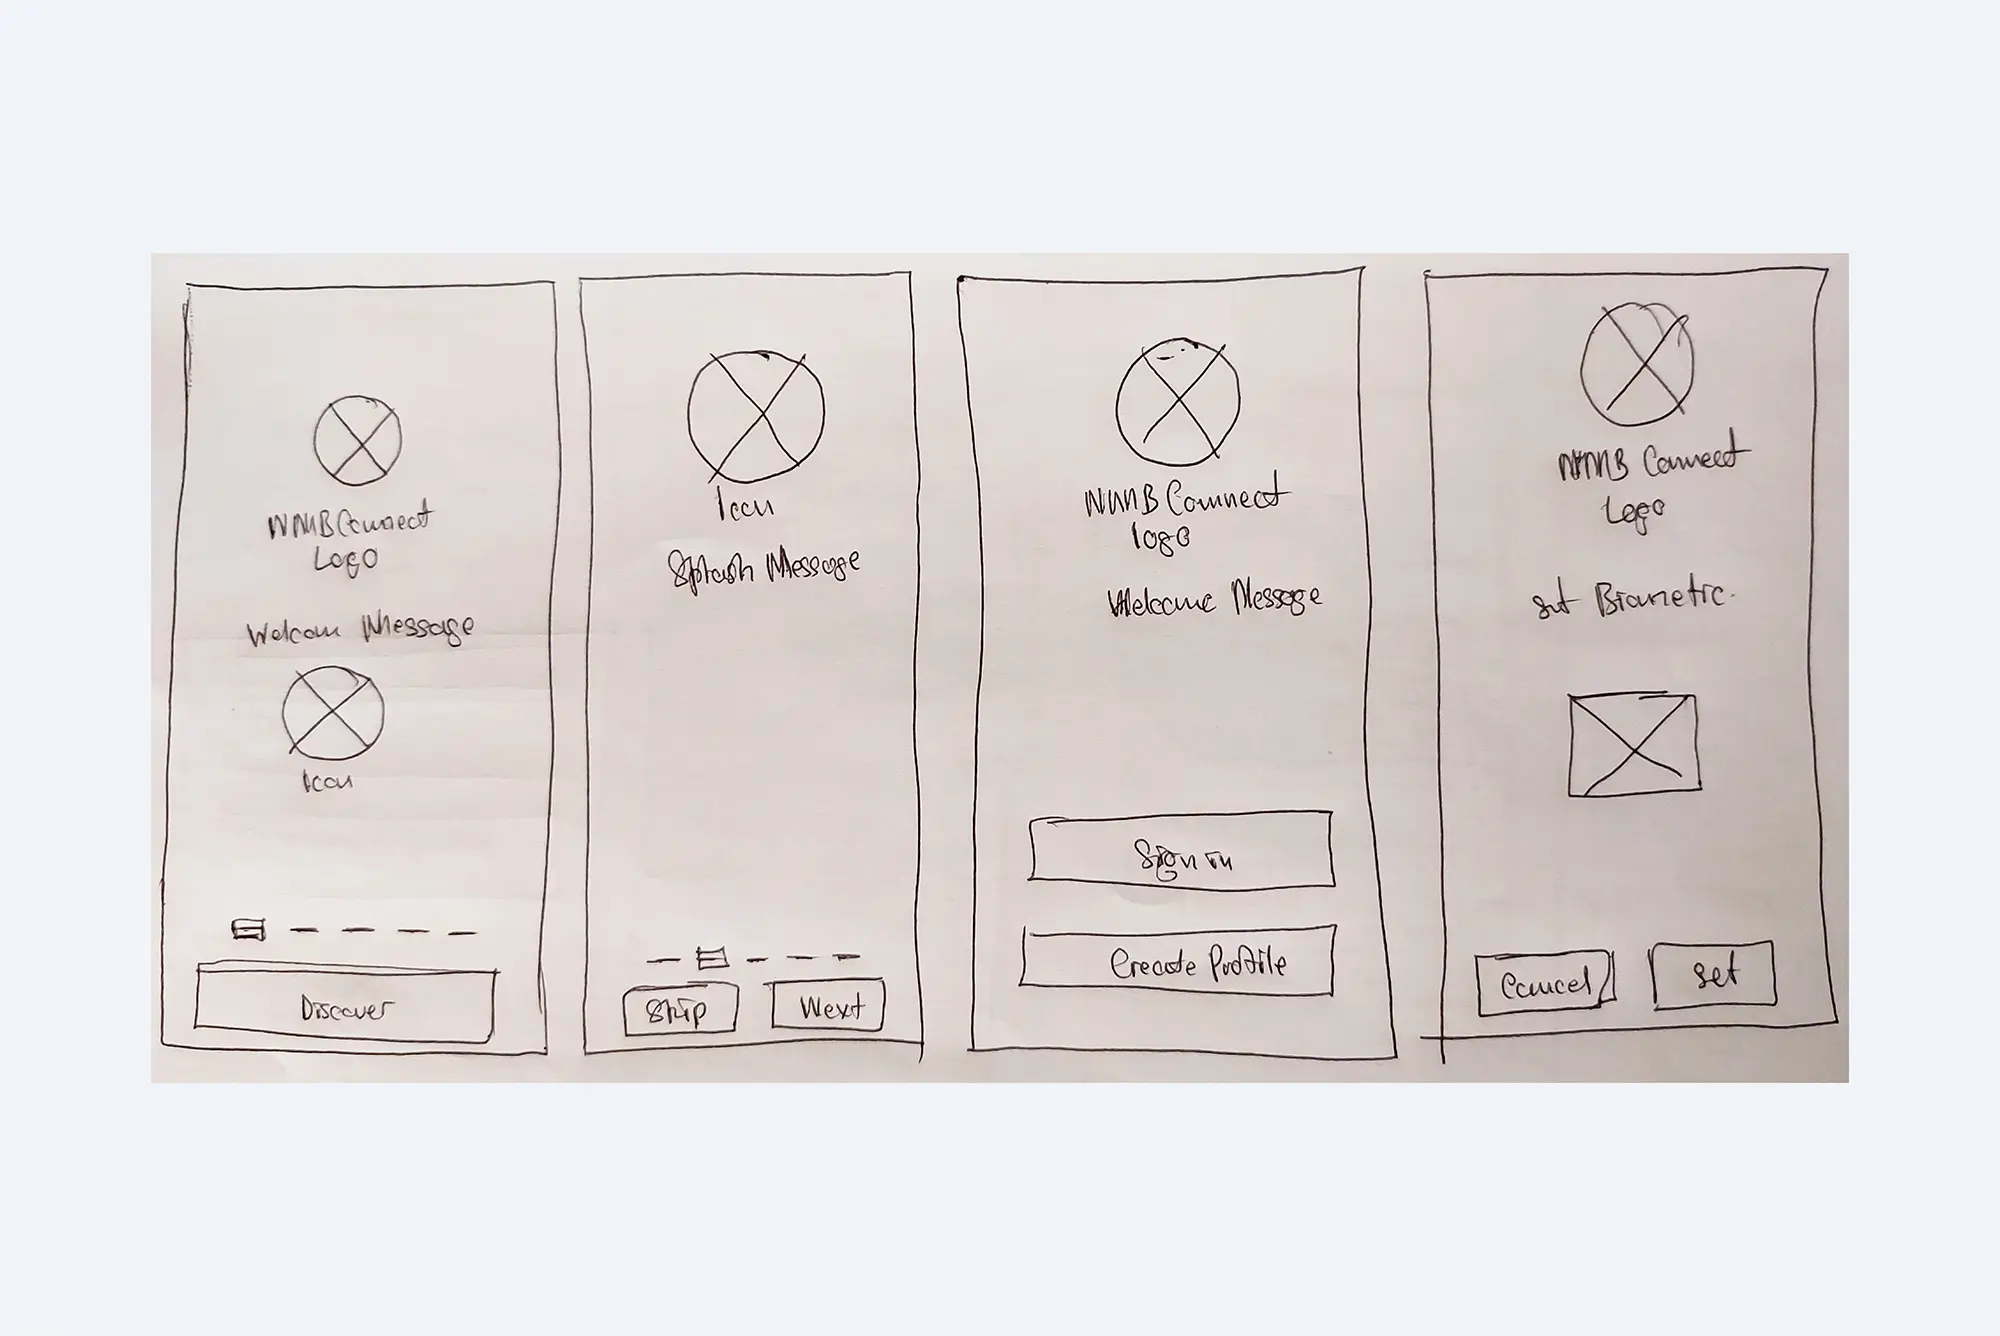 NMB Connect
Logo
Welcom Message
Icon
Discover
Icon
Splash Message
Skip
Next
NMB Connect
logo
Welcome Message
Sign in
Create Profile
NMB Connect
Logo
set Biometric.
Cancel
Set